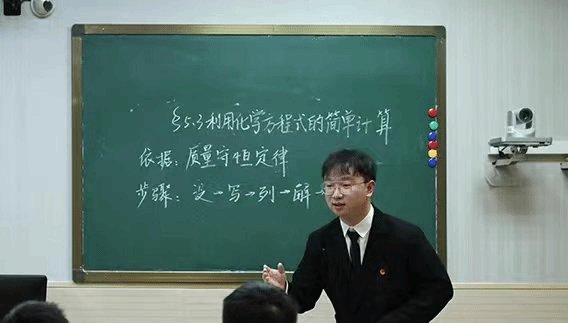 §5.3利用化学方程式的简单计算
依据：质量守恒定律
步骤：设→写→列→解→